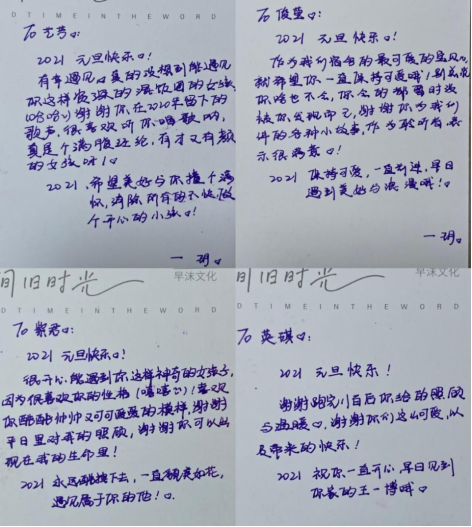 DTIMEINTHEWORD
To 艺芳:
2021 元旦快乐!
有幸遇见。真的没想到能遇见
你这样
谢谢你,在2020年留下的
歌声,很喜欢听你唱歌呐,
有才又有颜
的女孩呀!
2021,希望美好与你撞个满
怀,消除所有的不快,做
个开心的小孩!
一玥。
To 俊莹:
2021 元旦快乐!
作为我们宿舍的最可爱的
就希望你一直保持可爱哦!别总说
你啥也不会,你会的都暂时没
被你发现而已,谢谢你为我们
讲的各种小故事,作为聆听者表
示很荣幸!
2021 保持可爱,一直前进,早日
遇到美好与浪漫哦!
一玥。
间旧时光
早沫文化
DTIMEINTHEWORD
To 紫君:
2021 元旦快乐!
很开心能遇到你这样神奇的女孩子,
因为很喜欢你的性格(嘻嘻)!喜欢
你酷酷帅帅又可可爱爱的模样,谢谢
平日里对我的照顾,谢谢你可以出
现在我的生命里!
2021 永远酷拽下去,一直貌美如花,
遇见属于你的他!
间旧时光
早沫文化
DTIMEINTHEWORD
To 英琪:
2021 元旦快乐!
谢谢跑完八百后你给的照顾
与温暖,谢谢你们这么可爱,以
及带来的快乐!
2021 祝你一直开心,早日见到
你家的王一博哦。